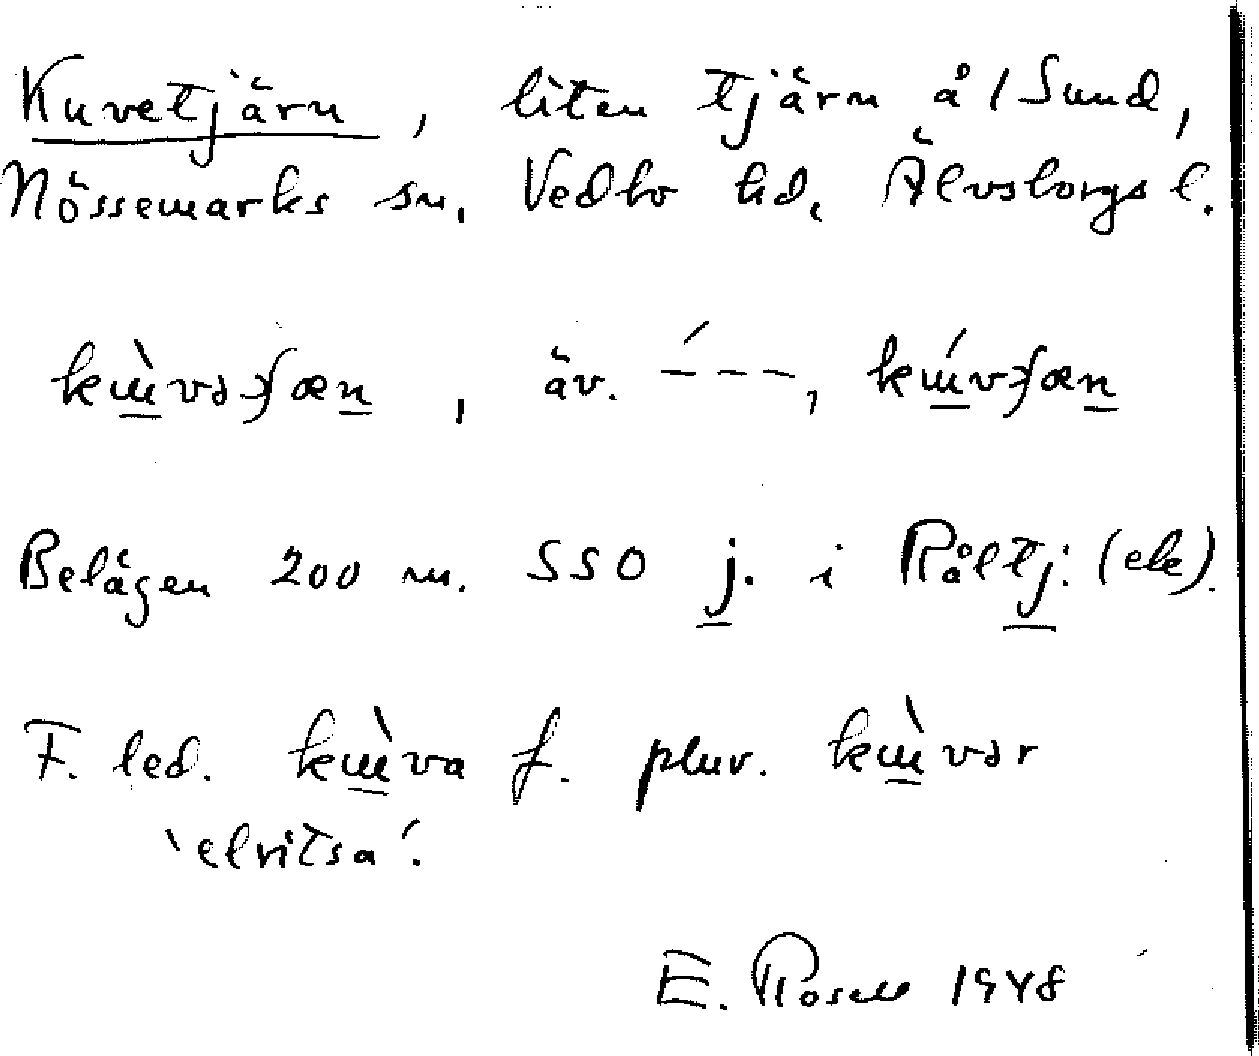 Kuvetjärn, liten tjärn å 1 Sund,
Nössemarks sn. Vedbo hd, Älvsborgs l.
kɯ̀vəʄæn, äv. ́ - - -, kɯ́vʄæn
Belägen 200 m. SSO j. i Råltj: (ek).
F. led. kɯ̀va f. plur. kɯ̀vər
'elritsa'.
E. Rosell 1948